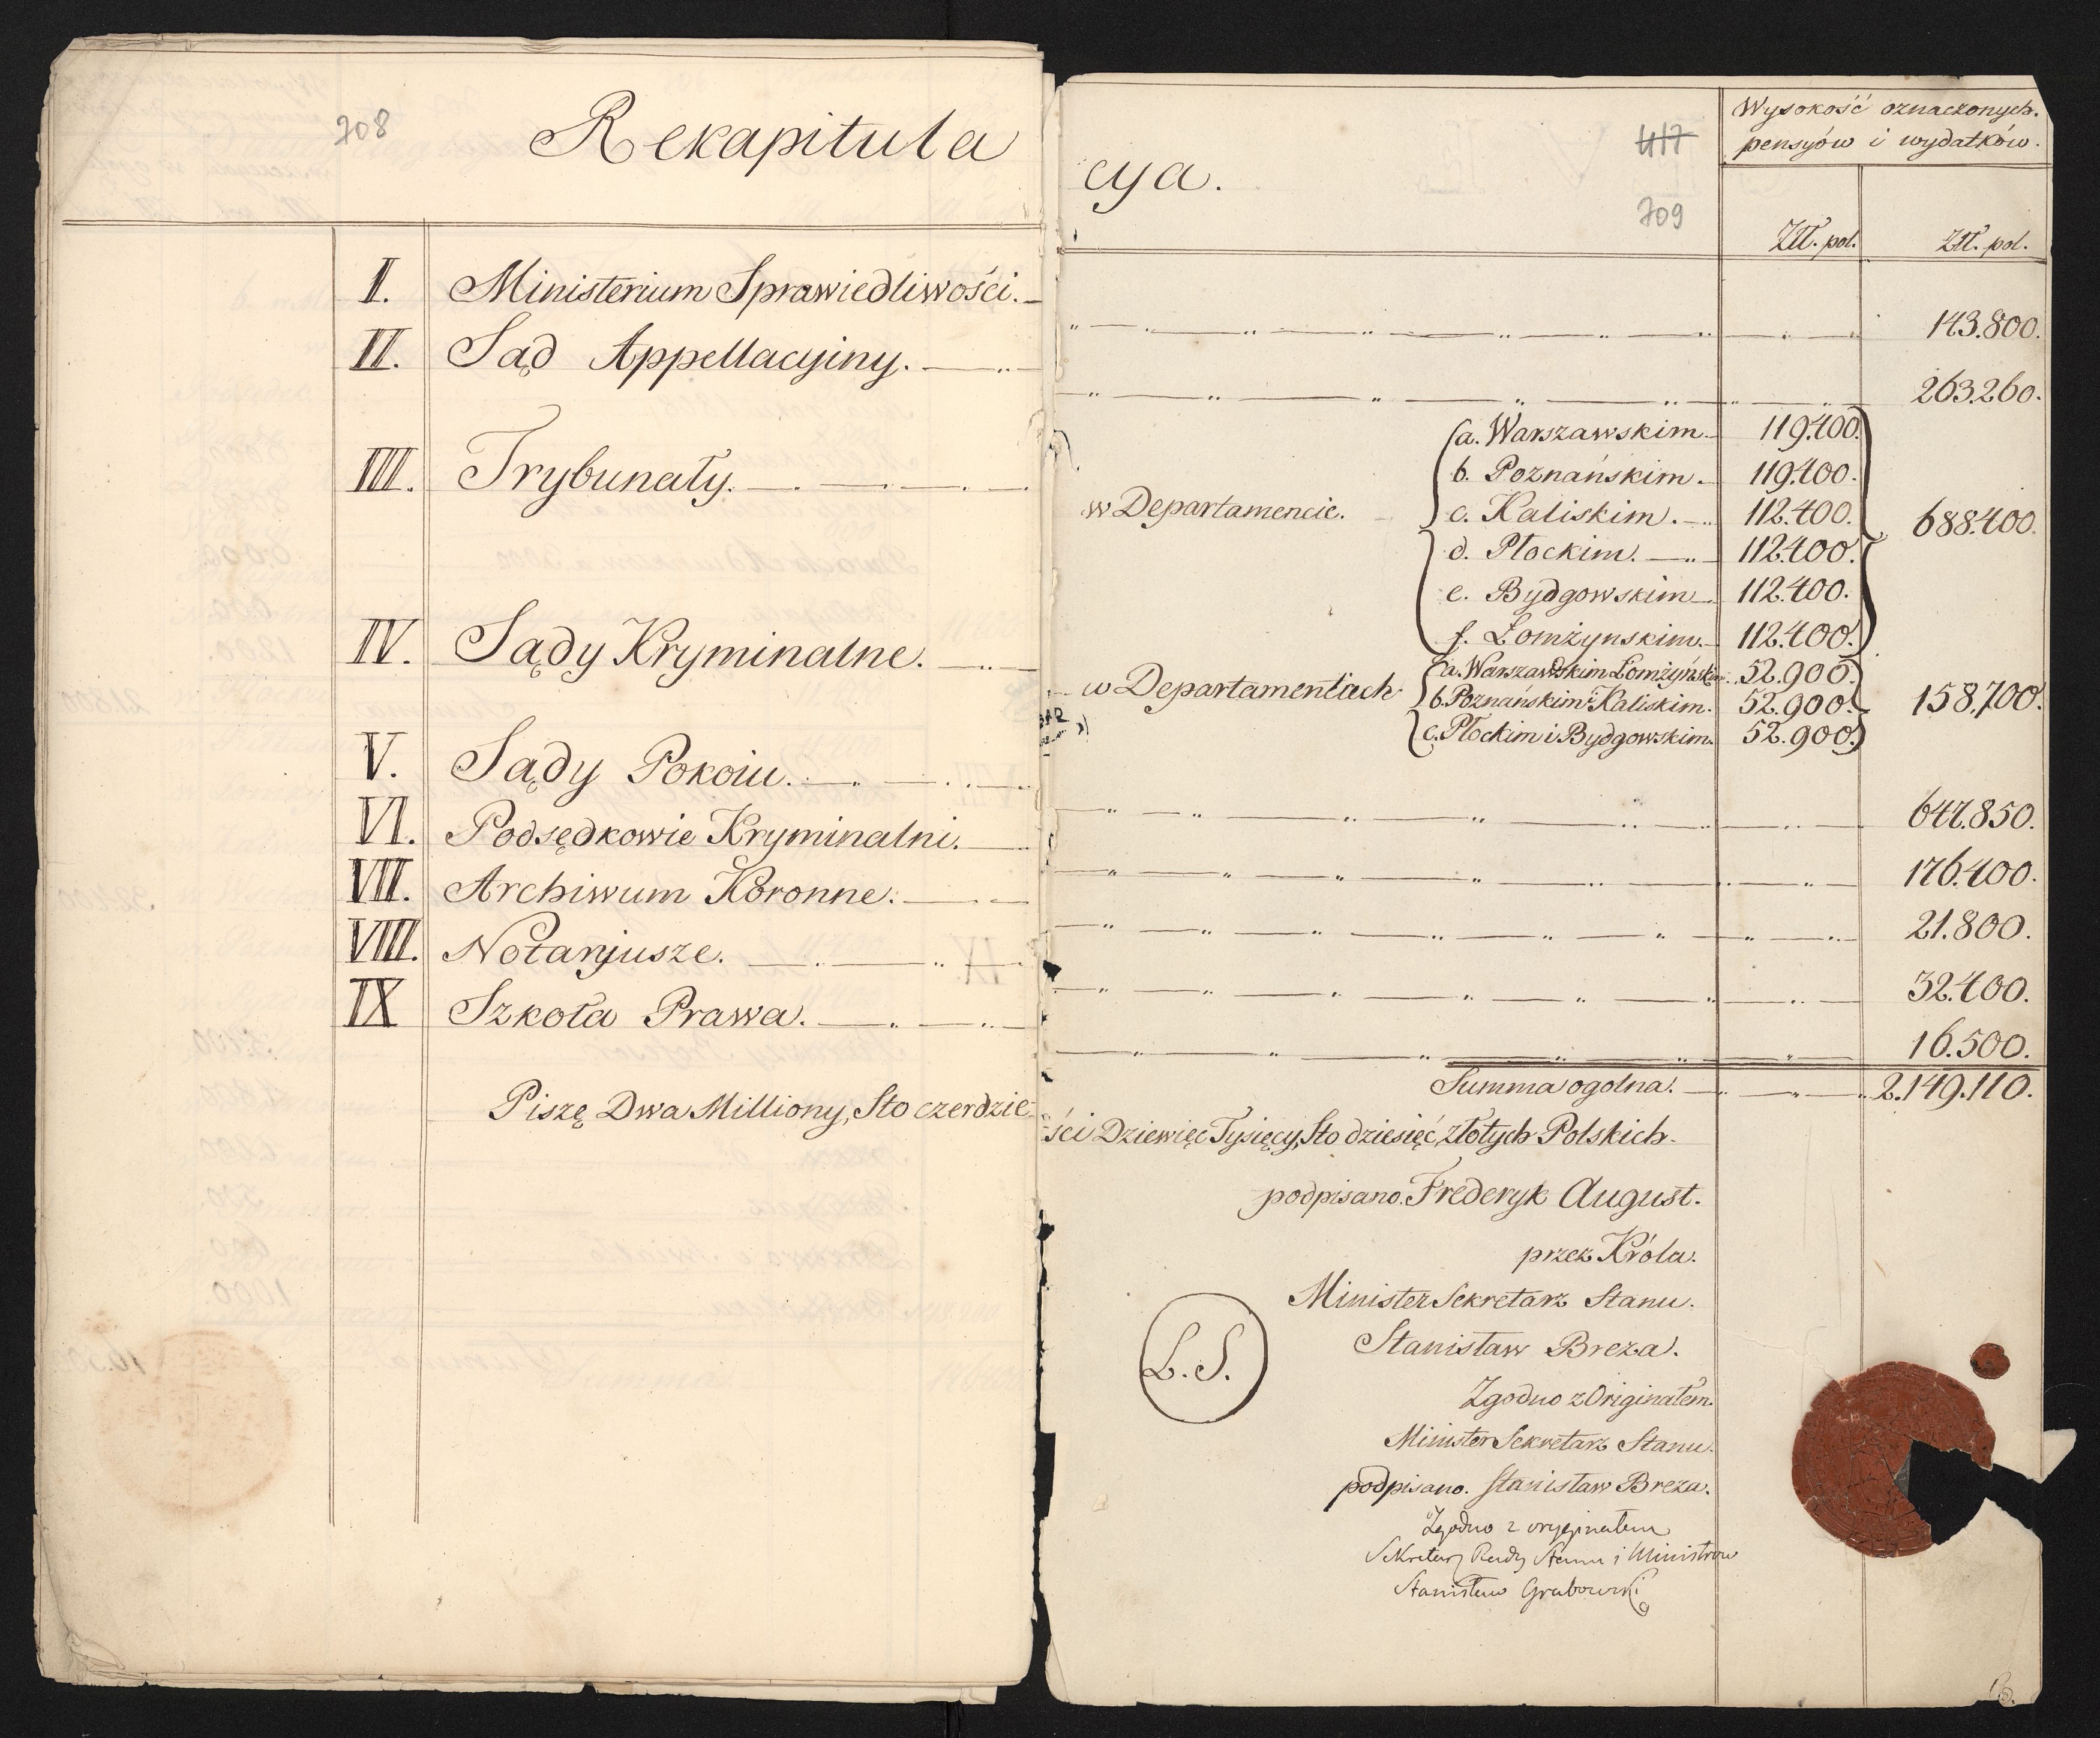 708
Rekapitula
I. Ministerium Sprawiedliwości.
II. Sąd Appellacyiny.
III. Trybunały.
IV. Sądy Kryminalne.
V. Sądy Pokoiu.
VI. Podsędkowie Kryminalni.
VII. Archiwum Koronne.
VIII. Notaryusze.
IX Szkoła Prawa.
Piszę Dwa Milliony, Sto czerdzie-
417
709
cya.
Wysokość oznaczonych
pensyów i wydatków.
Złł. pol. Złł. pol.
143.800.
263.260.
w Departamencie.
a. Warszawskim 119.400.
b. Poznańskim. 119.400.
c. Kaliskim. 112.400.
688.400.
d. Płockim. 112.400.
e. Bydgowskim 112.400.
f. Łomżynskim. 112.400.
w Departamentach
a. Warszawskim Łomżyńskim. 52.900.
b. Poznańskim i Kaliskim. 52.900.
158.700.
c. Płockim i Bydgowskim. 52.900.
647.850.
176.400.
21.800.
32.400.
16.500.
Summa ogolna. 2.149.110.
ści Dziewięc Tysięcy, Sto dziesięć, złotych Polskich.
podpisano. Frederyk August.
przez Króla.
Minister Sekretarz Stanu.
Stanisław Breza.
L. S.
Zgodno z Originałem.
Minister Sekretarz Stanu.
podpisano. Stanisław Breza.
Zgodno z oryginałem
Sekretarz Rady Stanu i Ministrow
Stanisław Grabowski